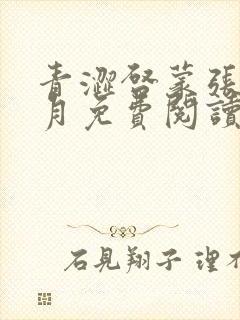 青澀啓蒙張
月免費閱讀
石見翔子 理不